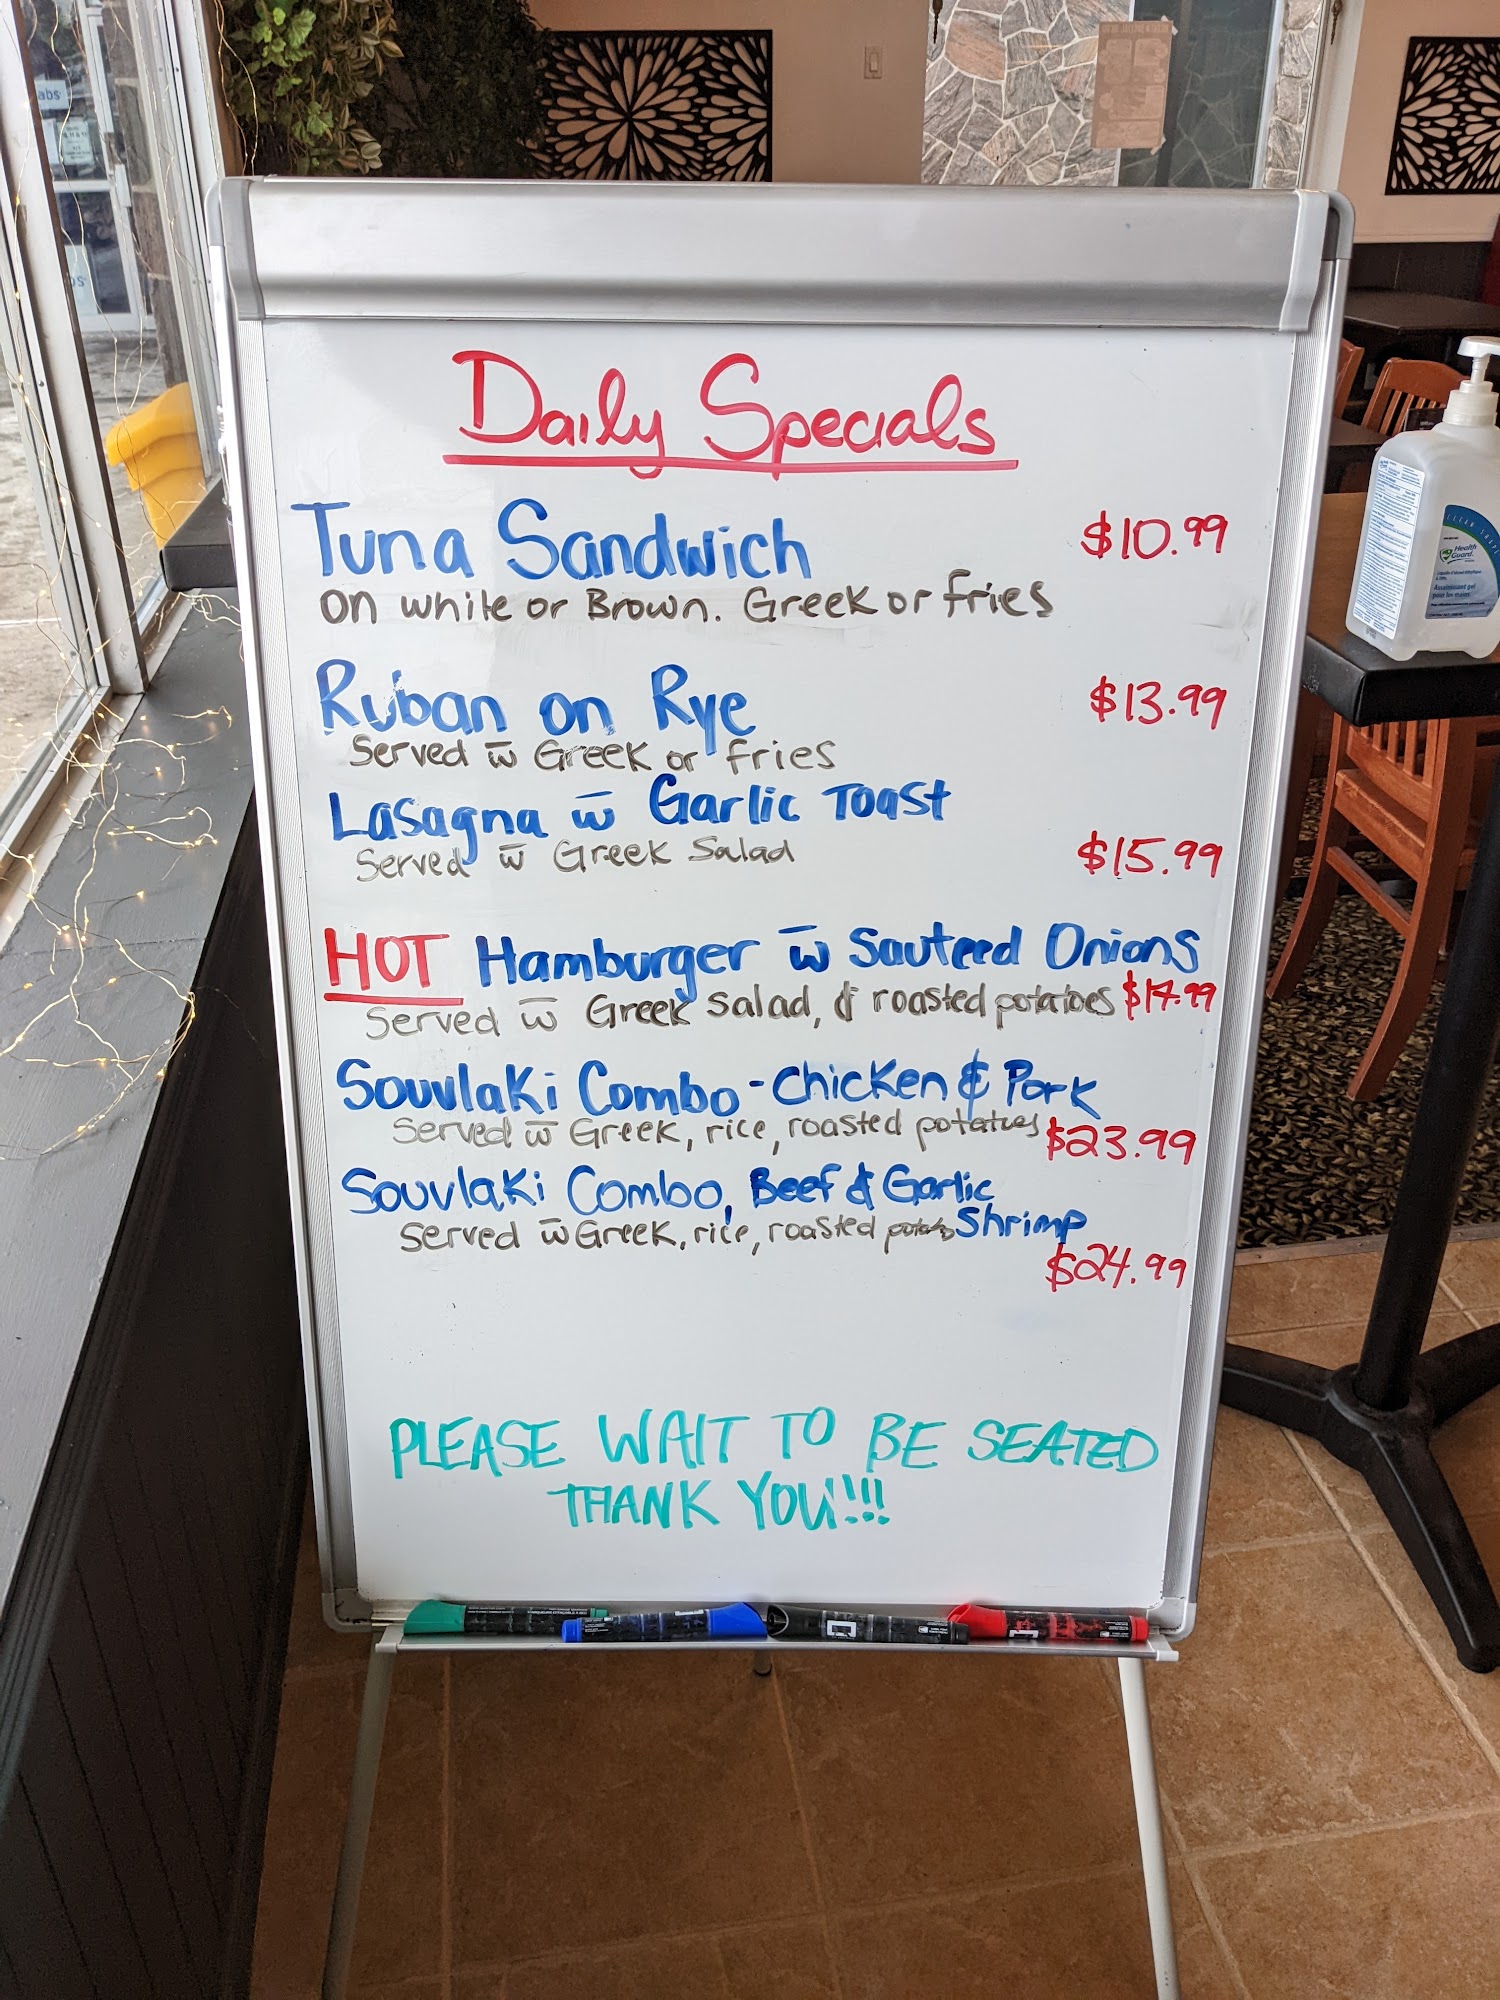 Daily Specials
Tuna Sandwich $10.99
on white or Brown. Greek or fries
Ruban on Rye $13.99
Served w̅ Greek or fries
Lasagna w̅ Garlic Toast
Served w̅ Greek Salad $15.99
HOT Hamburger w̅ Sauteed Onions
Served w̅ Greek Salad, & roasted potatoes $14.99
Souvlaki Combo - Chicken & Pork
Served w̅ Greek, rice, roasted potatoes $23.99
Souvlaki Combo, Beef & Garlic
Served w̅ Greek, rice, roasted potatoes Shrimp
$24.99
PLEASE WAIT TO BE SEATED
THANK YOU!!!
Health
Guard